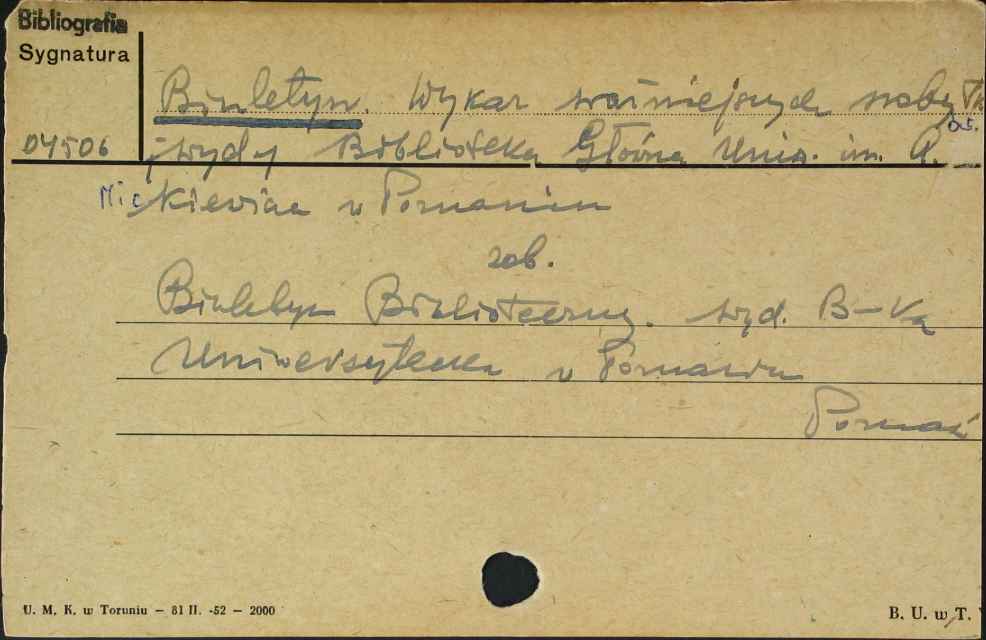 Bibliografia
Sygnatura
Biuletyn. Wykaz ważniejszych
04506
wyd. Biblioteka Główna Uniw. im. A.
Mickiewicza w Poznaniu
zob.
Biuletyn Biblioteczny. wyd. B-ka
Uniwersytecka w Poznaniu
Poznań
U. M. K. w Toruniu — 81 II. -52 — 2000
B. U. w T.